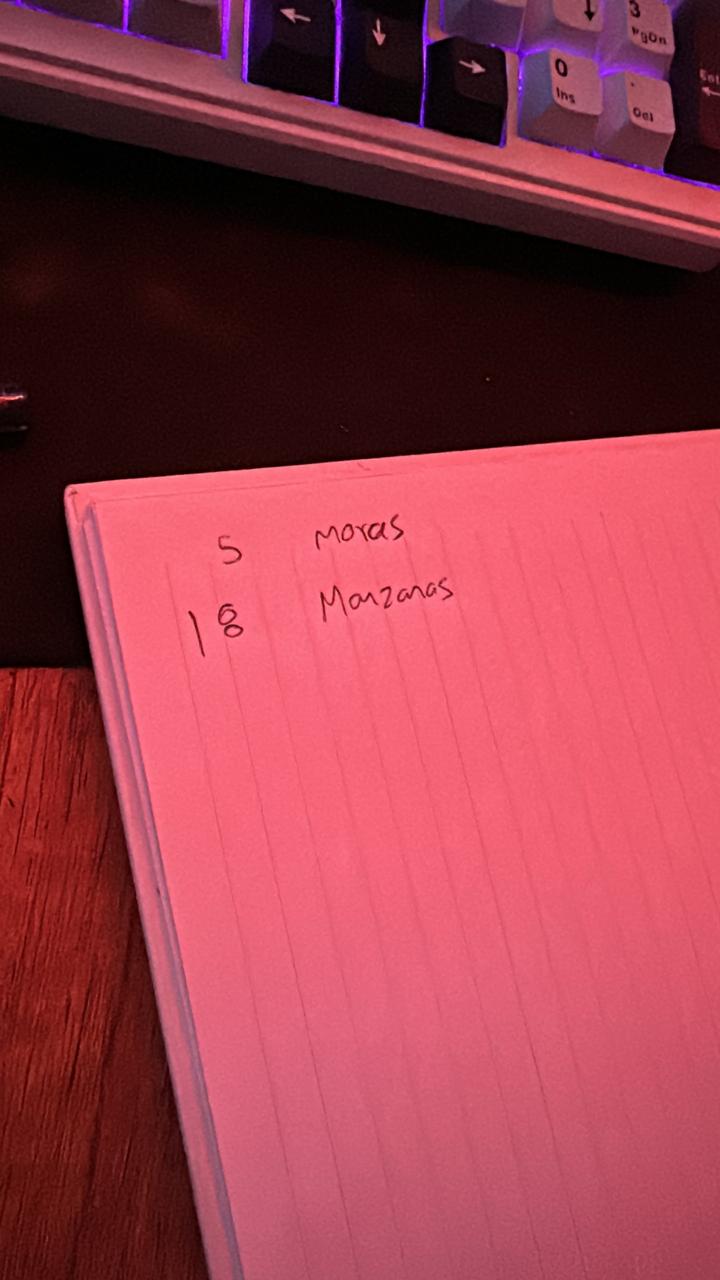 ←
↓
→
↓
3
PgDn
0
Ins
.
Del
5 moras
18 Manzanas